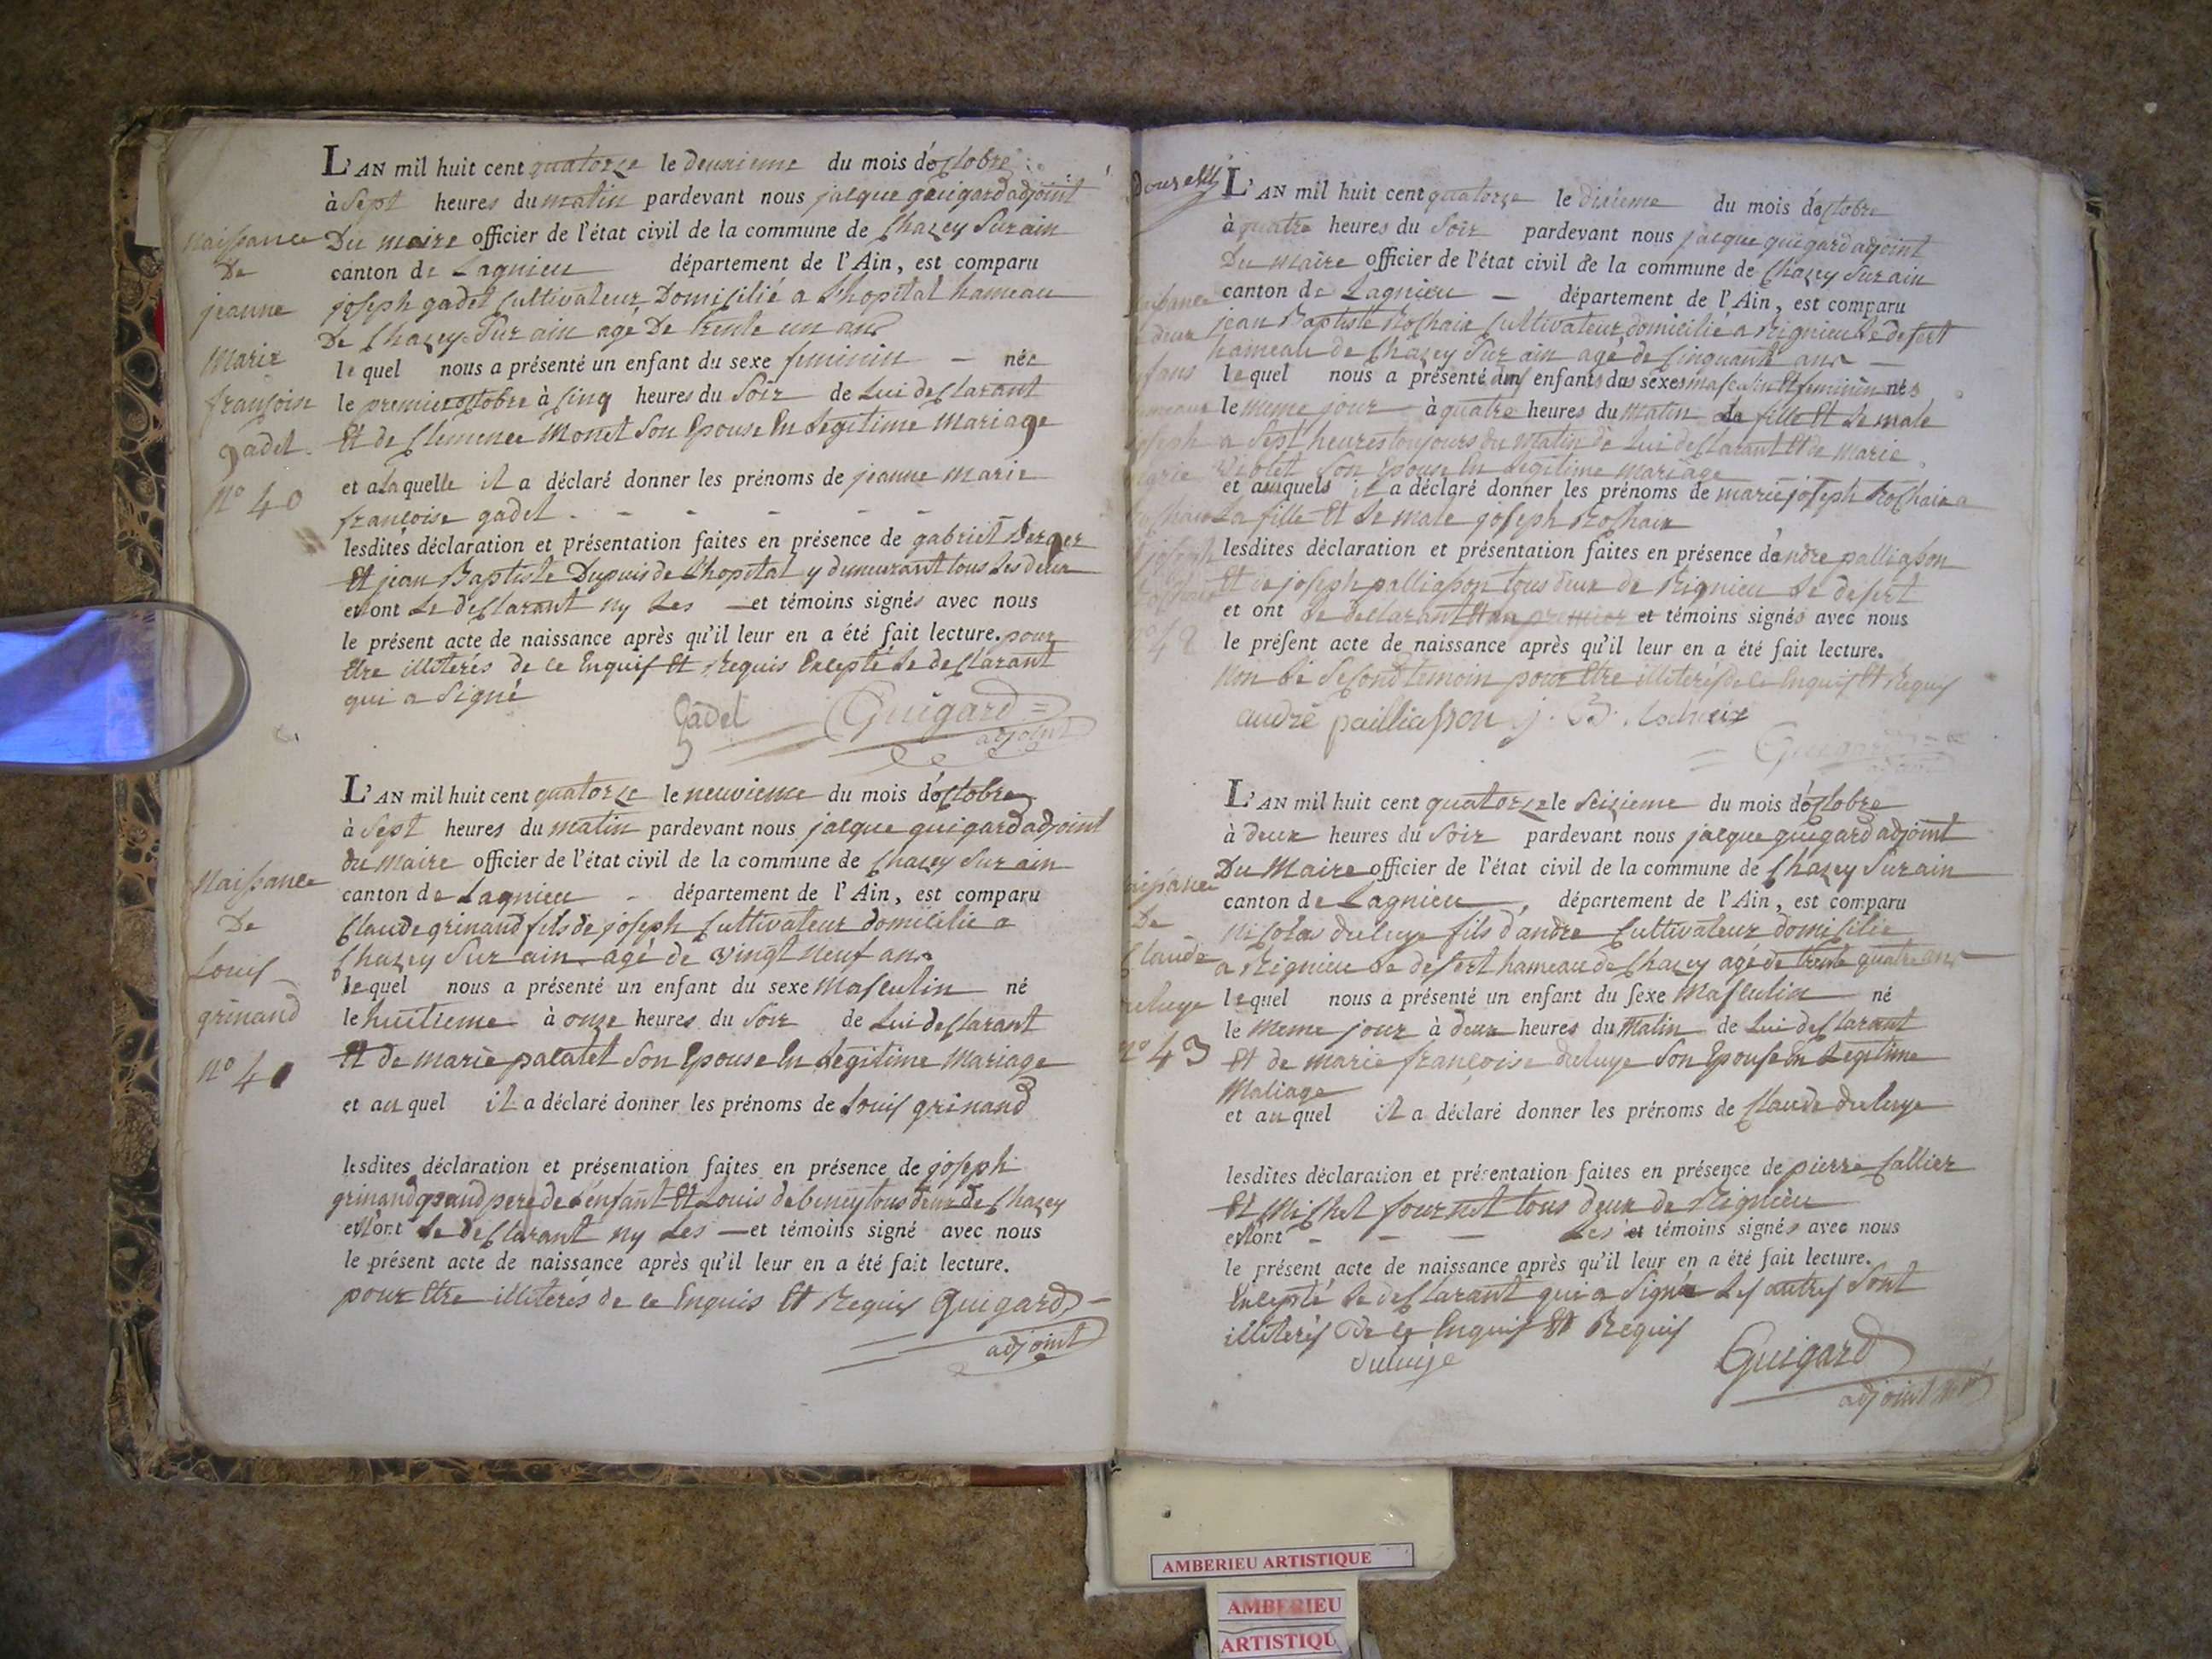 L'AN mil huit cent quatorze le deuxieme du mois d'octobre
à Sept heures du matin pardevant nous jacque guigard adjoint
Du maire officier de l'état civil de la commune de Chazey Sur ain
canton de Lagnieu département de l'Ain, est comparu
joseph gadet Cultivateur Domicilié a l'hopital hameau
De Chazey Sur ain agé De trente un ans
lequel nous a présenté un enfant du sexe feminin — née
le premier octobre à cinq heures du Soir de Lui declarant
Et de Clemence Monet Son Epouse En Legitime Mariage
et a laquelle il a déclaré donner les prénoms de jeanne marie
françoise gadet - - - - -
lesdites déclaration et présentation faites en présence de gabriel Berger
Et jean Baptiste Dupuis de L'hopital y demeurant tous Les deux
et ont Le declarant ny Les — et témoins signés avec nous
le présent acte de naissance après qu'il leur en a été fait lecture. pour
Etre illiterés de ce Enquis Et Requis Excepté Le declarant
qui a Signé
Gadet Guigard
adjoint
Naissance
De
jeanne
Marie
françoise
gadet
n° 40
L'AN mil huit cent quatorze le neuvieme du mois d'octobre
à Sept heures du matin pardevant nous jacque guigard adjoint
du maire officier de l'état civil de la commune de Chazey Sur ain
canton de Lagnieu - département de l'Ain, est comparu
Claude grinand fils de joseph Cultivateur domicilié a
Chazey Sur ain agé de vingt neuf ans
lequel nous a présenté un enfant du sexe Masculin né
le huitieme à onze heures du Soir de Lui declarant
Et de marie palatet Son Epouse En Legitime Mariage
et au quel il a déclaré donner les prénoms de Louis grinand
lesdites déclaration et présentation faites en présence de joseph
grinand grand pere de L'enfant Et Louis debeney tous deux de Chazey
et ont Le declarant ny Les — et témoins signé avec nous
le présent acte de naissance après qu'il leur en a été fait lecture.
pour Etre illiterés de ce Enquis Et Requis Guigard
adjoint
Naissance
De
Louis
grinand
n° 41
L'AN mil huit cent quatorze le dixieme du mois d'octobre
à quatre heures du Soir pardevant nous jacque guigard adjoint
Du maire officier de l'état civil de la commune de Chazey Sur ain
canton de Lagnieu — département de l'Ain, est comparu
jean Baptiste Rochaix Cultivateur domicilié a Rignieu Le desert
hameau de Chazey Sur ain agé de Cinquante ans —
lequel nous a présenté enfants des sexes masculin Et feminin nés
le meme jour à quatre heures du matin la fille Et Le male
a Sept heures toujours du Matin de Lui declarant Et de Marie
Violet Son Epouse En Legitime mariage
et auxquels il a déclaré donner les prénoms de marie joseph Rochaix a
La fille Et Le male joseph Rochaix
lesdites déclaration et présentation faites en présence d'andre palliasson
Et de joseph palliasson tous deux de Rignieu Le desert
et ont Le declarant Et premier et témoins signés avec nous
le présent acte de naissance après qu'il leur en a été fait lecture.
Non Le Second temoin pour Etre illiterés de ce Enquis Et Requis
andré pailliasson j. B. Rochaix
Guigard
adjoint
n° 42
L'AN mil huit cent quatorze le Seizieme du mois d'octobre
à deux heures du Soir pardevant nous jacque guigard adjoint
Du Maire officier de l'état civil de la commune de Chazey Sur ain
canton de Lagnieu, département de l'Ain, est comparu
nicolas duluye fils d'andré Cultivateur domicilié
a Rignieu Le desert hameau de Chazey agé de trente quatre ans
lequel nous a présenté un enfant du sexe Masculin né
le meme jour à deux heures du Matin de Lui declarant
Et de marie françoise duluye Son Epouse En Legitime
Maliage
et au quel il a déclaré donner les prénoms de Claude duluye
lesdites déclaration et présentation faites en présence de pierre Callier
Et Michel fournet tous deux de Rignieu
et ont - - — Les et témoins signés avec nous
le présent acte de naissance après qu'il leur en a été fait lecture.
Excepté Le declarant qui a Signé Les autres Sont
illiterés de ce Enquis Et Requis
duluye Guigard
adjoint
De
Claude
n° 43
AMBERIEU ARTISTIQUE
AMBERIEU
ARTISTIQU